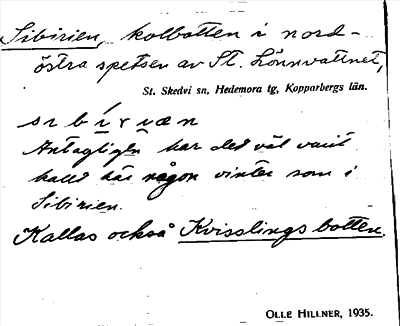 Sibirien, kolbotten i nord-
östra spetsen av St. Lönnvattnet,
St. Skedvi sn, Hedemora tg, Kopparbergs län.
Antagligen har det väl varit
kallt här någon vinter som i
Sibirien.
Kallas också Kvisslings botten.
OLLE HILLNER, 1935.